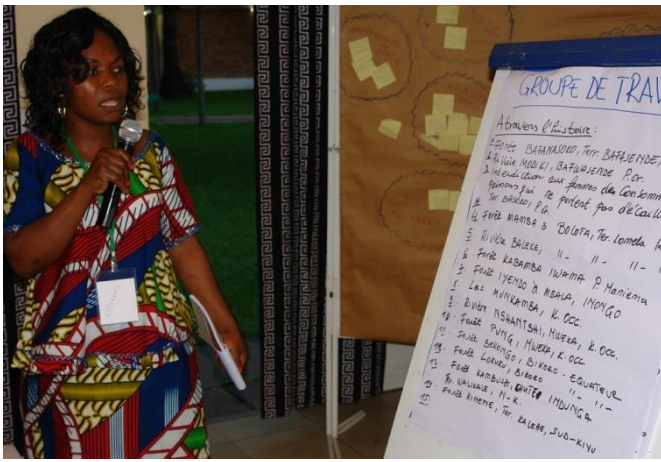 GROUPE DE TRAV
A travers l'histoire :
1. Forêt BAFANASOKO, Terr. BAFASENDE,
2. Rivière MOBIKI, BAFWASENDE P.or.
3. Interdiction aux femmes des Consomm
poissons qui ne portent pas d'écaill
Ter. BASOKO, P.O.
4. Forêt MAMBA à BOLOTA, Ter. Lomela
5. RIVIÈRE BALEKE, 11- 11- 11-
6. Forêt KABAMBA IWAMA P. Maniema
7. Forêt IYENBO à MBALA, INONGO
8. LAC MUNKAMBA, K. OCC.
9. Rivière NSHANTSHI, MWEKA, K. OCC.
10. Forêt PUNG, MWEKA, K. OCC.
11. Forêt BEKONGO, BIKORO - EQUATEUR
12. Forêt LOKUKU, BIKORO 11- 11-
13. Forêt KAMBUSHI, INDUNGA
14. WALIKALE, N-K.
15. Forêt KINEME, Ter. KALEHE, SUD-KIVU